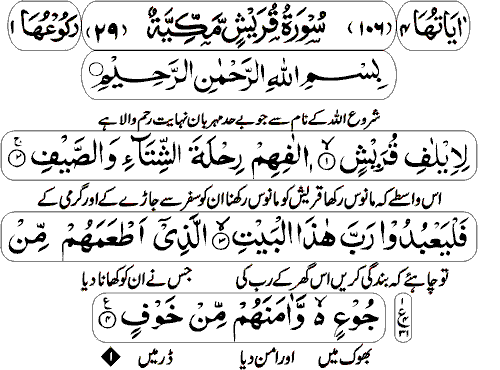 اٰیاتُهَا ۴ (۱۰۶) سُوْرَةُ قُرَیْشٍ مَّكِّیَّةٌ (۲۹) رُكُوْعُهَا ۱
بِسْمِ اللّٰهِ الرَّحْمٰنِ الرَّحِیْمِ
شروع اللہ کے نام سے جو بے حد مہربان نہایت رحم والا ہے
لِاِیْلٰفِ قُرَیْشٍ ۙ۱ اٖلٰفِهِمْ رِحْلَةَ الشِّتَآءِ وَالصَّیْفِ ۚ۲
اس واسطے کہ مانوس رکھا قریش کو مانوس رکھنا ان کو سفر سے جاڑے کے اور گرمی کے
فَلْیَعْبُدُوْا رَبَّ هٰذَا الْبَیْتِ ۙ۳ الَّذِیْۤ اَطْعَمَهُمْ مِّنْ
تو چاہئے کہ بندگی کریں اس گھر کے رب کی جس نے ان کو کھانا دیا
جُوْعٍ ۙ۬ وَّاٰمَنَهُمْ مِّنْ خَوْفٍ ۠۴ ع
بھوک میں اور امن دیا ڈر میں ۱